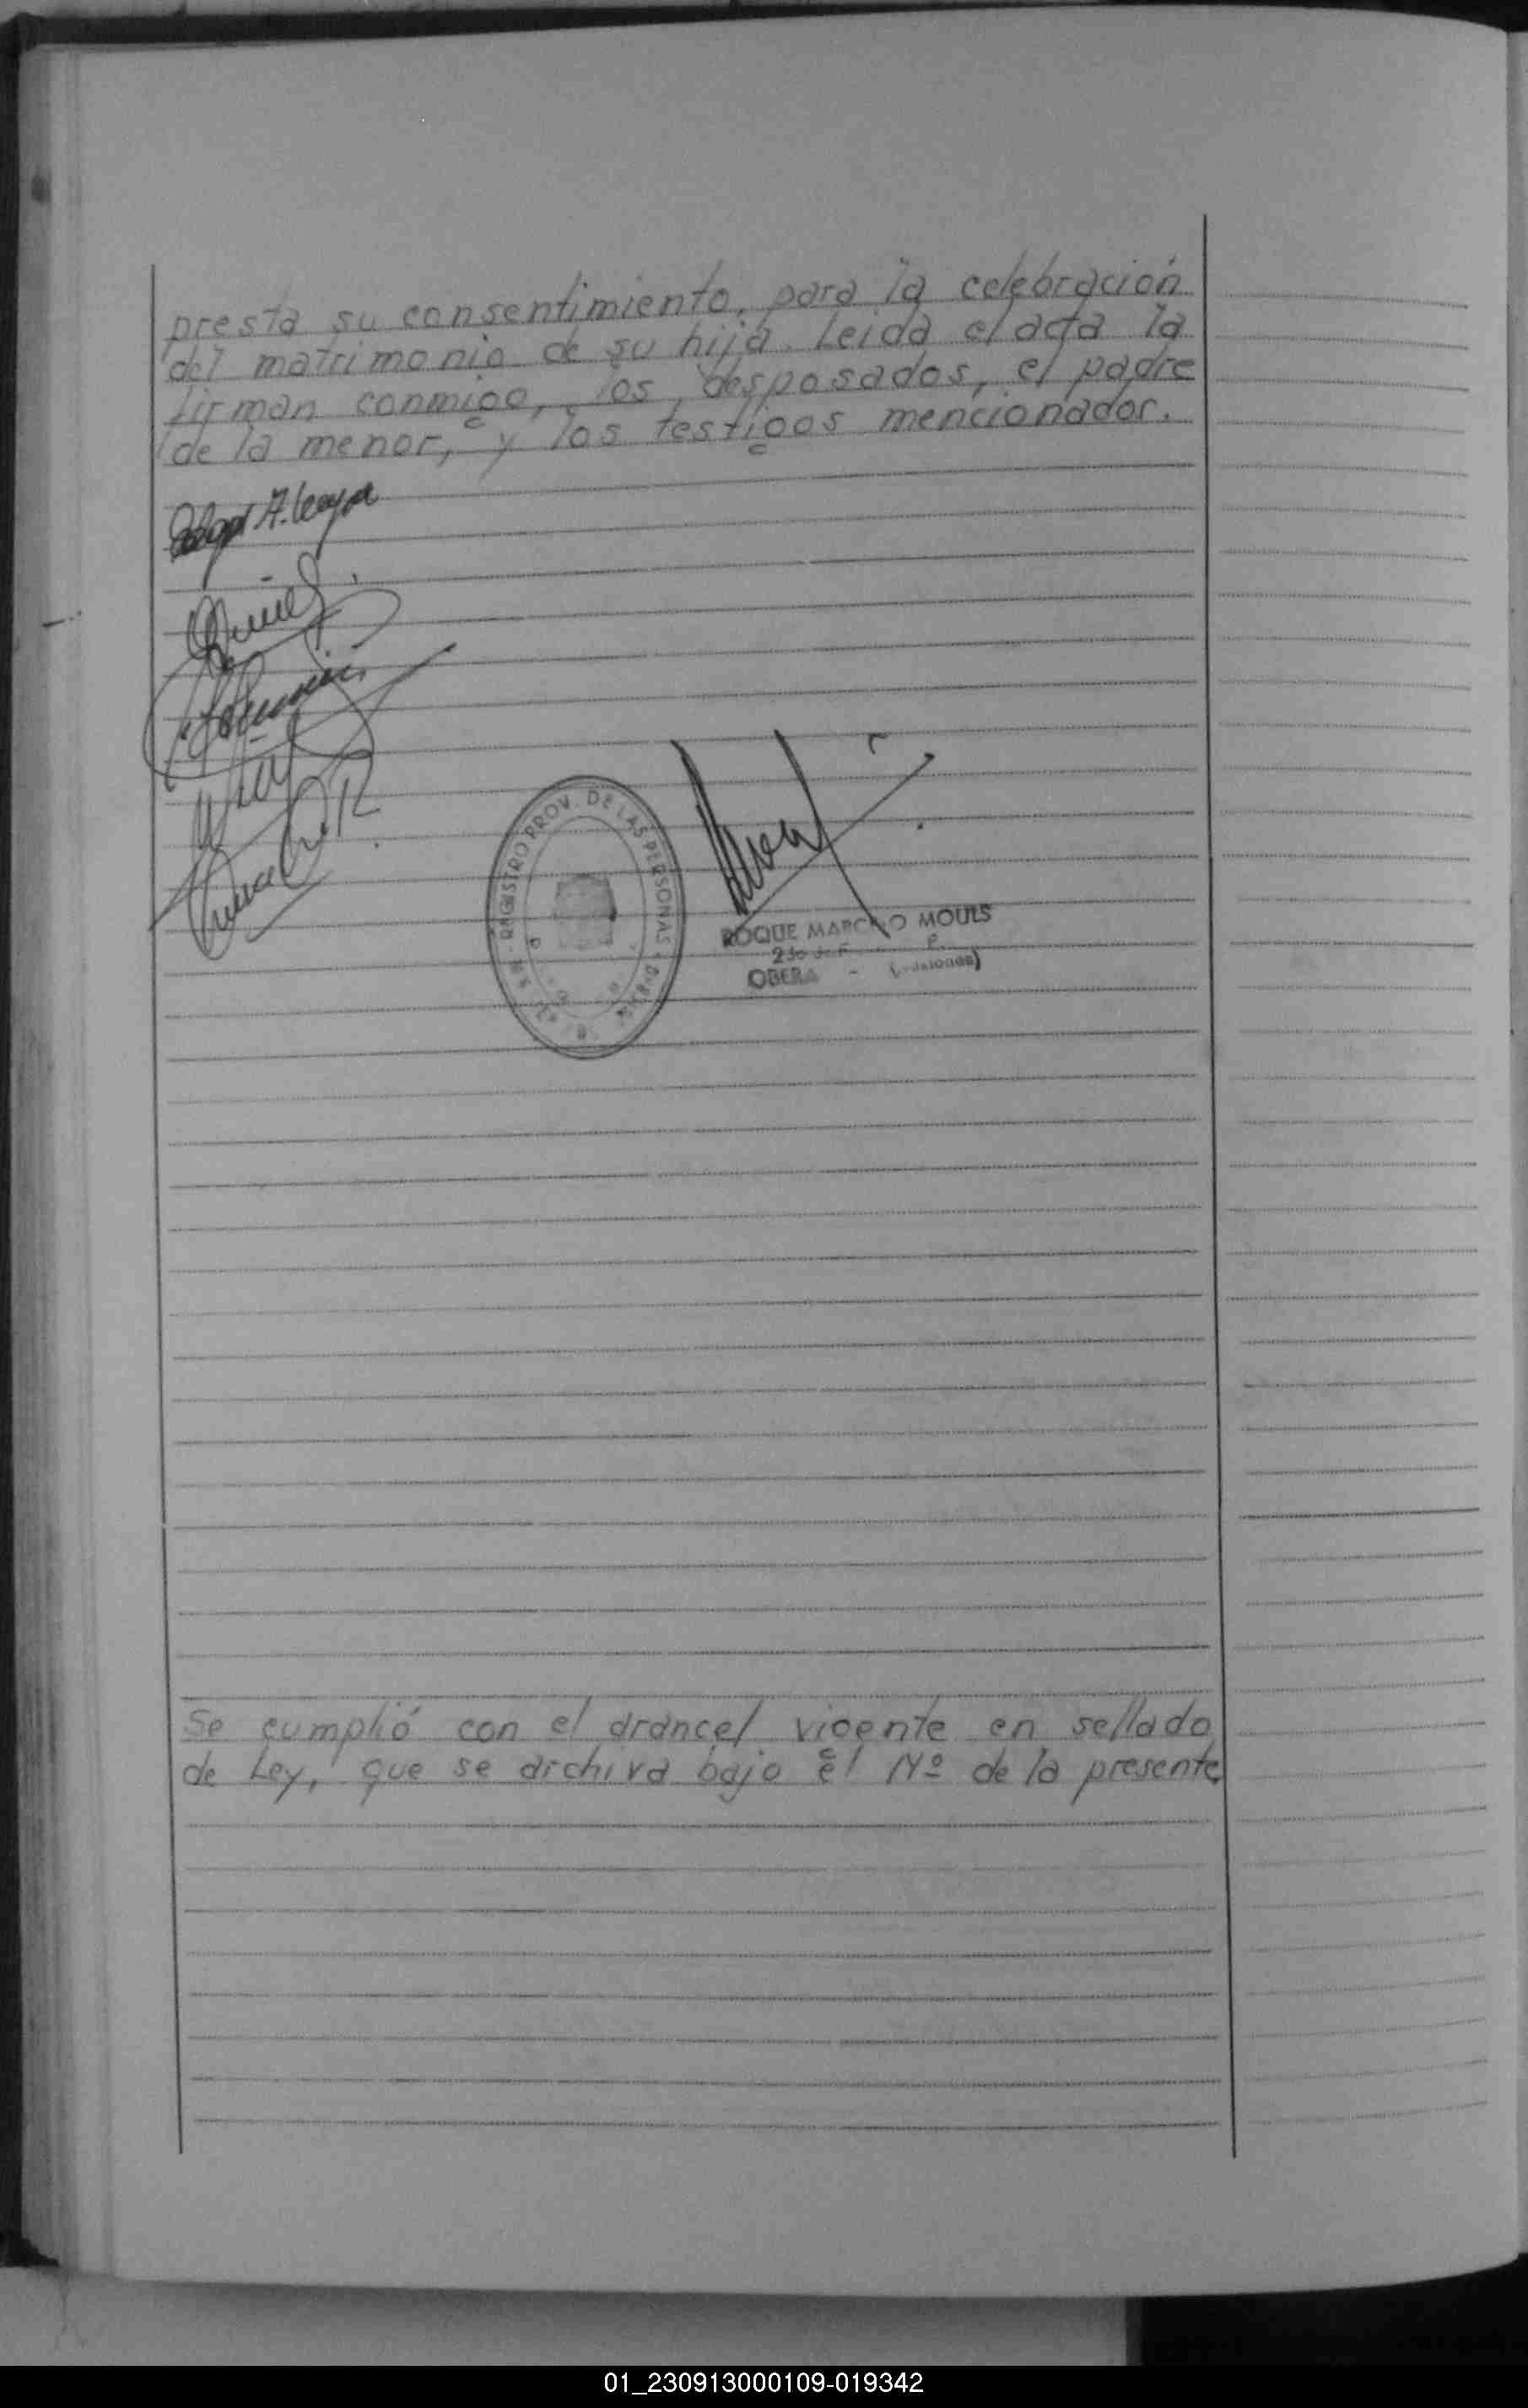 presta su consentimiento, para la celebración
del matrimonio de su hija. Leida el acta la
firman conmigo, los desposados, el padre
de la menor, y los testigos mencionados.
REGISTRO PROV. DE LAS PERSONAS
ROQUE MARCELO MOULS
OBERA - (Misiones)
Se cumplió con el arancel vigente en sellado
de Ley, que se archiva bajo el Nº de la presente
01_230913000109-019342